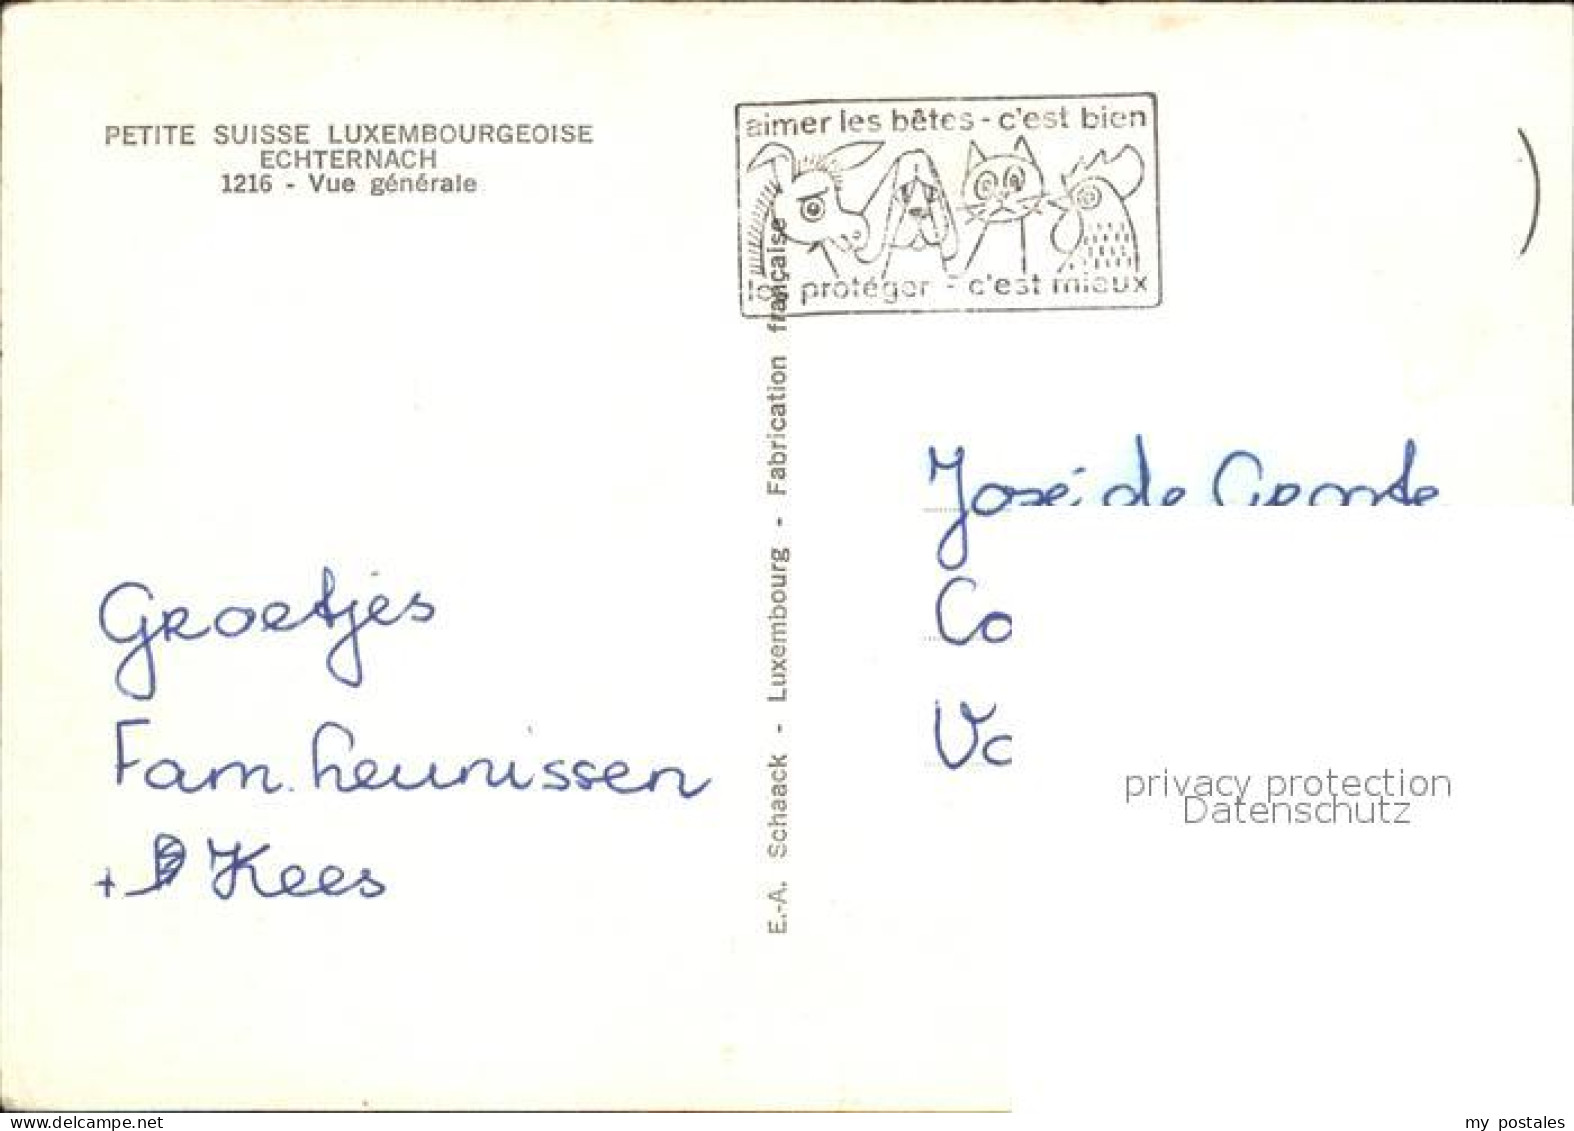 PETITE SUISSE LUXEMBOURGEOISE
ECHTERNACH
1216 - Vue générale
aimer les bêtes - c'est bien
protéger - c'est mieux
Groetjes
Fam. heunissen
+ Kees
E.-A. Schaack - Luxembourg - Fabrication française
José de
Co
privacy protection
Datenschutz
delcampe.net
my postales